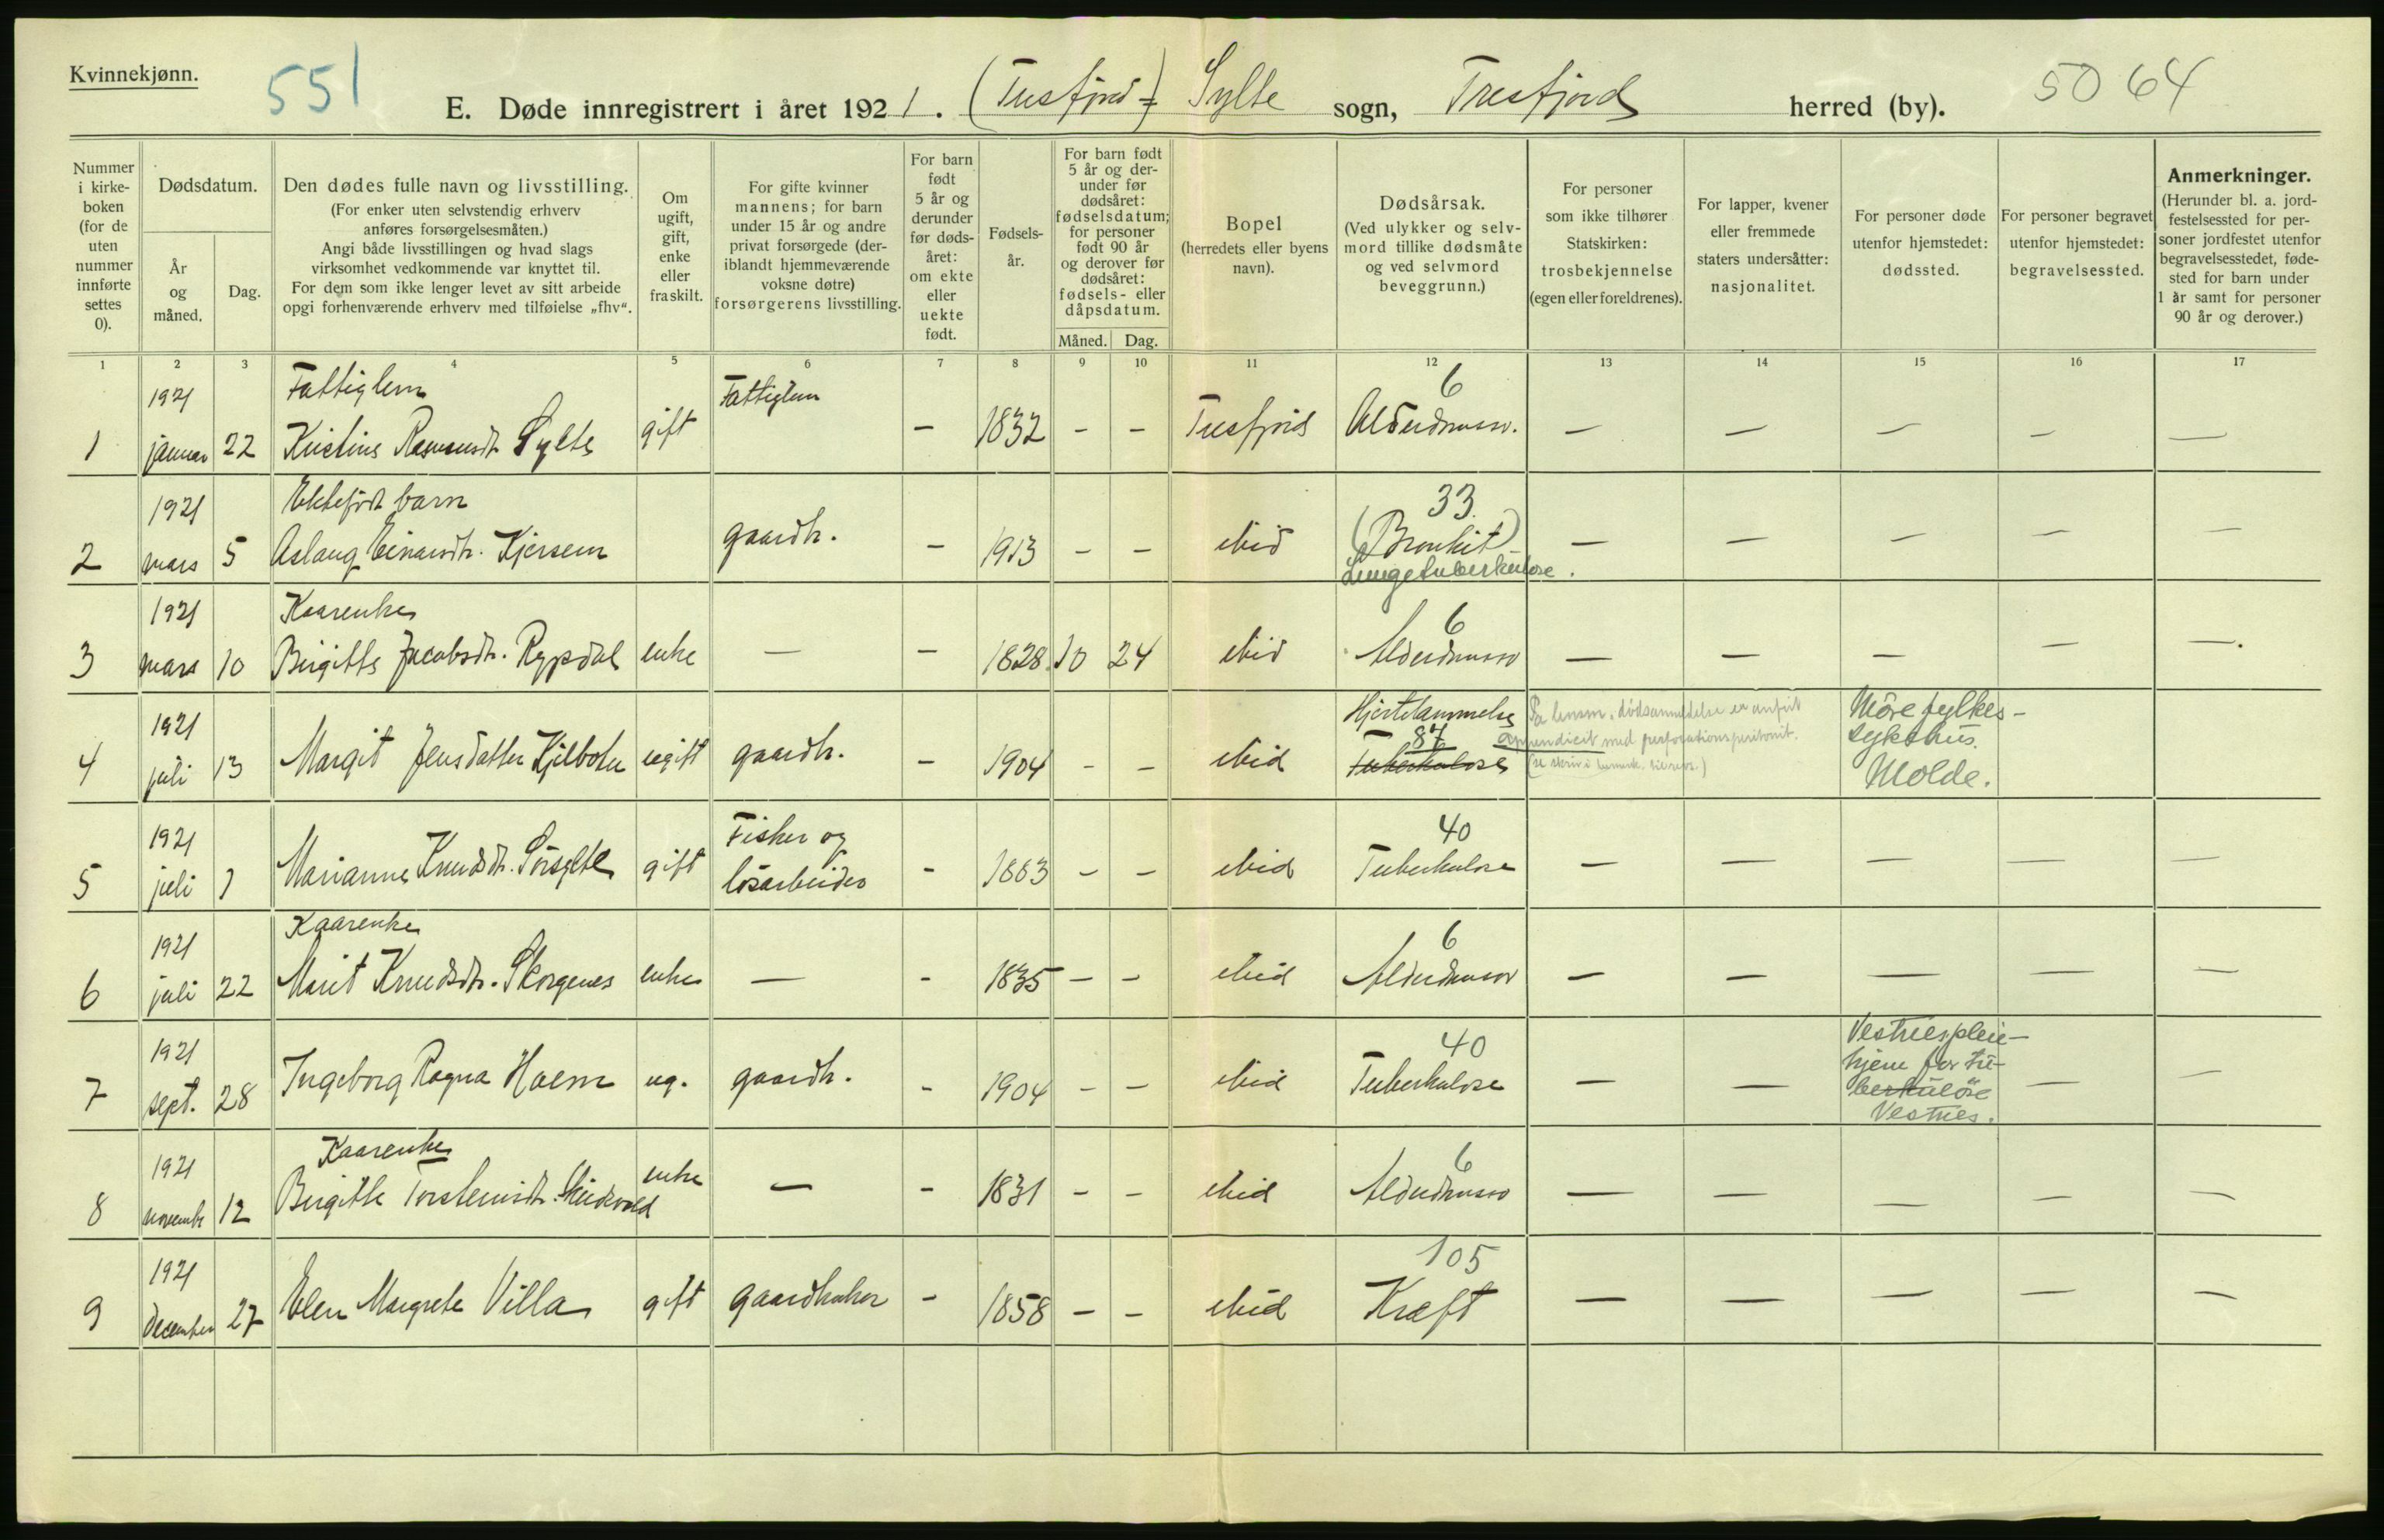 Kvinnekjønn.
551
E. Døde innregistrert i året 1921. (Tresfjord =) Sylte sogn, Tresfjord herred (by).
5064
Nummer i kirke- boken (for de uten nummer innførte settes 0).
Dødsdatum.
År og måned.
Dag.
Den dødes fulle navn og livsstilling.
(For enker uten selvstendig erhverv
anføres forsørgelsesmåten.)
Angi både livsstillingen og hvad slags
virksomhet vedkommende var knyttet til.
For dem som ikke lenger levet av sitt arbeide
opgi forhenværende erhverv med tilføielse „fhv“.
Om ugift, gift, enke eller fraskilt.
For gifte kvinner
mannens; for barn
under 15 år og andre
privat forsørgede (der-
iblandt hjemmeværende
voksne døtre)
forsørgerens livsstilling.
For barn født 5 år og derunder før døds- året: om ekte eller uekte født.
Fødsels- år.
For barn født
5 år og der-
under før
dødsåret:
fødselsdatum;
for personer
født 90 år
og derover før
dødsåret:
fødsels- eller
dåpsdatum.
Måned. Dag.
Bopel
(herredets eller byens
navn).
Dødsårsak.
(Ved ulykker og selv-
mord tillike dødsmåte
og ved selvmord
beveggrunn.)
For personer
som ikke tilhører
Statskirken:
trosbekjennelse
(egen eller foreldrenes).
For lapper, kvener
eller fremmede
staters undersåtter:
nasjonalitet.
For personer døde
utenfor hjemstedet:
dødssted.
For personer begravet
utenfor hjemstedet:
begravelsessted.
Anmerkninger.
(Herunder bl. a. jord-
festelsessted for per-
soner jordfestet utenfor
begravelsesstedet, føde-
sted for barn under
1 år samt for personer
90 år og derover.)
1 2 3 4 5 6 7 8 9 10 11 12 13 14 15 16 17
1921 Fattiglem Fattiglem 6
1 januar 22 Kristine Rasmusdt. Sylte gift — 1832 — — Tresfjord Alderdomssv. — — — — —
1921 Ektefødt barn 33.
2 mars 5 Aslaug Einarsdtr. Kjersem gaardbr. — 1913 — — ibid (Bronkit) — — — — —
Lungetuberkulose.
1921 Kaarenke 6
3 mars 10 Birgitte Jacobsdtr. Rypdal enke — — 1828 10 24 ibid Alderdomssv — — — — —.
1921 Hjertelammelse På lensm. dødsanmeldelse er anført Möre fylkes-
87 appendicit med perforationsperitonit. sykehus.
4 juli 13 Margit Jensdatter Kjelboten ugift gaardbr. — 1904 — — ibid Tuberkulose Molde.
1921 Fisker og 40
5 juli 1 Marianne Knudsdtr. Sörsylte gift lösarbeider — 1863 — — ibid Tuberkulose — — — — —
1921 Kaarenke 6
6 juli 22 Marit Knudsdtr. Skorgenes enke — — 1835 — — ibid Alderdomssv — — — — —
1921 40 Vestnes pleie-
hjem for tu-
7 sept. 28 Ingeborg Ragna Haem ug. gaardbr. — 1904 — — ibid Tuberkulose — — berkulöse — —
Vestnes.
1921 Kaarenke 6
8 novembr 12 Birgitte Torsteinsdt. enke — — 1831 — — ibid Alderdomssv — — — — —
1921 105
9 december 27 Elen Margrete Villa gift gaardbruker — 1858 — — ibid Kræft — — — — —